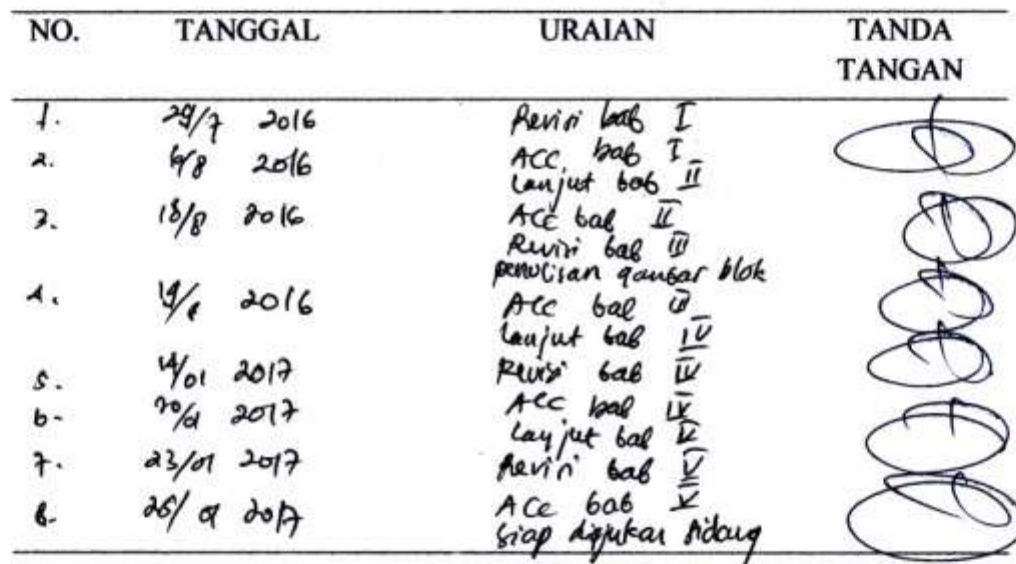 NO. TANGGAL URAIAN TANDA
TANGAN
1. 29/7 2016 Revisi bab I
2. 2016 ACC. bab I
Lanjut bab II
3. 18/8 2016 ACC bab II
Revisi bab III
penulisan gambar blok
4. 2016 ACC bab III
Lanjut bab IV
5. 14/01 2017 Revisi bab IV
6. 2017 ACC bab IV
Lanjut bab V
7. 23/01 2017 Revisi bab V
8. 2017 ACC bab V
Siap diajukan Sidang